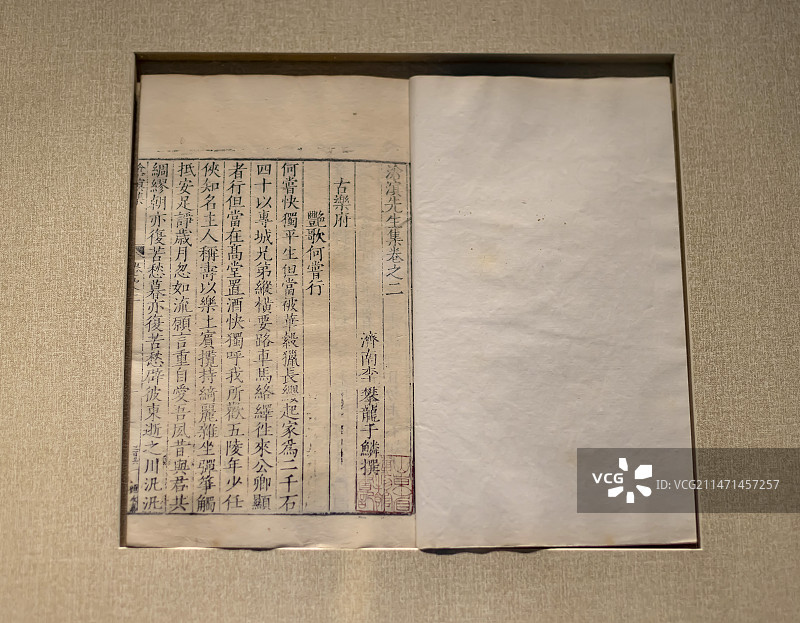 滄溟先生集卷之二
濟南李攀龍于鱗撰
古樂府
艷歌何嘗行
何嘗快獨平生但當被華轂獵長興起家為二千石
四十以專城兄弟縱橫要路車馬絡繹徃來公卿顯
者行但當在髙堂置酒快獨呼我所歡五陵年少任
俠知名主人稱壽以樂上賓攬持綺麗雜坐彈箏觸
抵安足諍歳月忽如流願言重自愛吾夙昔與君共
綢繆朝亦復苦愁暮亦復苦愁辟彼東逝之川汎汎
VCG
VCG
ID:VCG211471457257